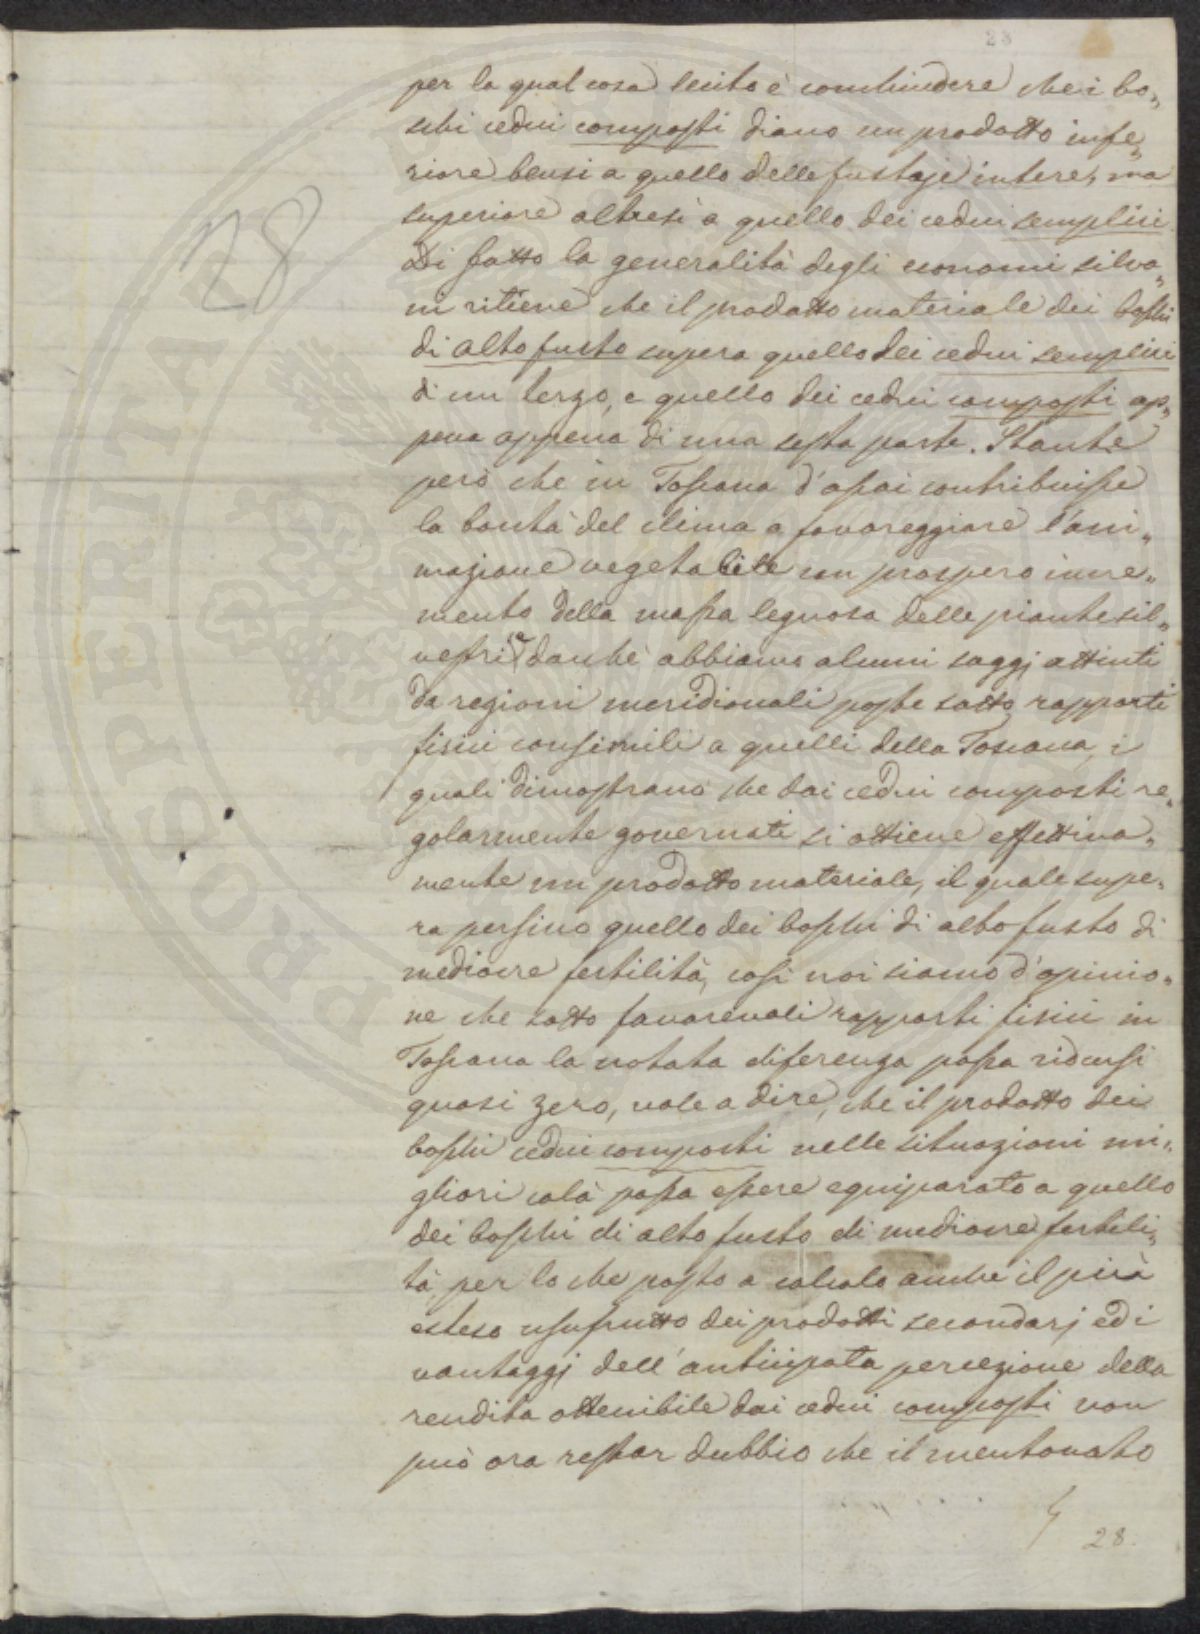 28
per la qual cosa lecito è conchiudere che i bo„
schi cedui composti diano un prodotto infe„
riore bensi a quello delle fustaje intere, ma
superiore altresì a quello dei cedui semplici
Di fatto la generalità degli economi silva„
ni ritiene che il prodotto materiale dei boschi
di alto fusto supera quello dei cedui semplici
di un terzo, e quello dei cedui composti ap„
pena appena di una sesta parte. Stante
però che in Toscana d'assai contribuisce
la bontà del clima a favoreggiare l'ani„
mazione vegetabile con prospero incre„
mento della massa legnosa delle piante sil„
vestri, danche abbiamo alcuni saggj attinti
da regioni meridionali poste sotto rapporti
fisici consimili a quelli della Toscana, i
quali dimostrano che dai cedui composti re„
golarmente governati si ottiene effettiva„
mente un prodotto materiale, il quale supe„
ra persino quello dei boschi di alto fusto di
mediocre fertilità, così noi siamo d'opinio„
ne che sotto favorevoli rapporti fisici in
Toscana la notata diferenza possa ridursi
quasi zero, vale a dire, che il prodotto dei
boschi cedui composti nelle situazioni mi„
gliori colà possa essere equiparato a quello
dei boschi di alto fusto di mediocre fertili„
tà, per lo che posto a calcolo anche il più
esteso usufrutto dei prodotti secondarj ed i
vantaggj dell'anticipata percezione della
rendita ottenibile dai cedui composti non
può ora restar dubbio che il mentovato
28
28.
PROSPERITAT